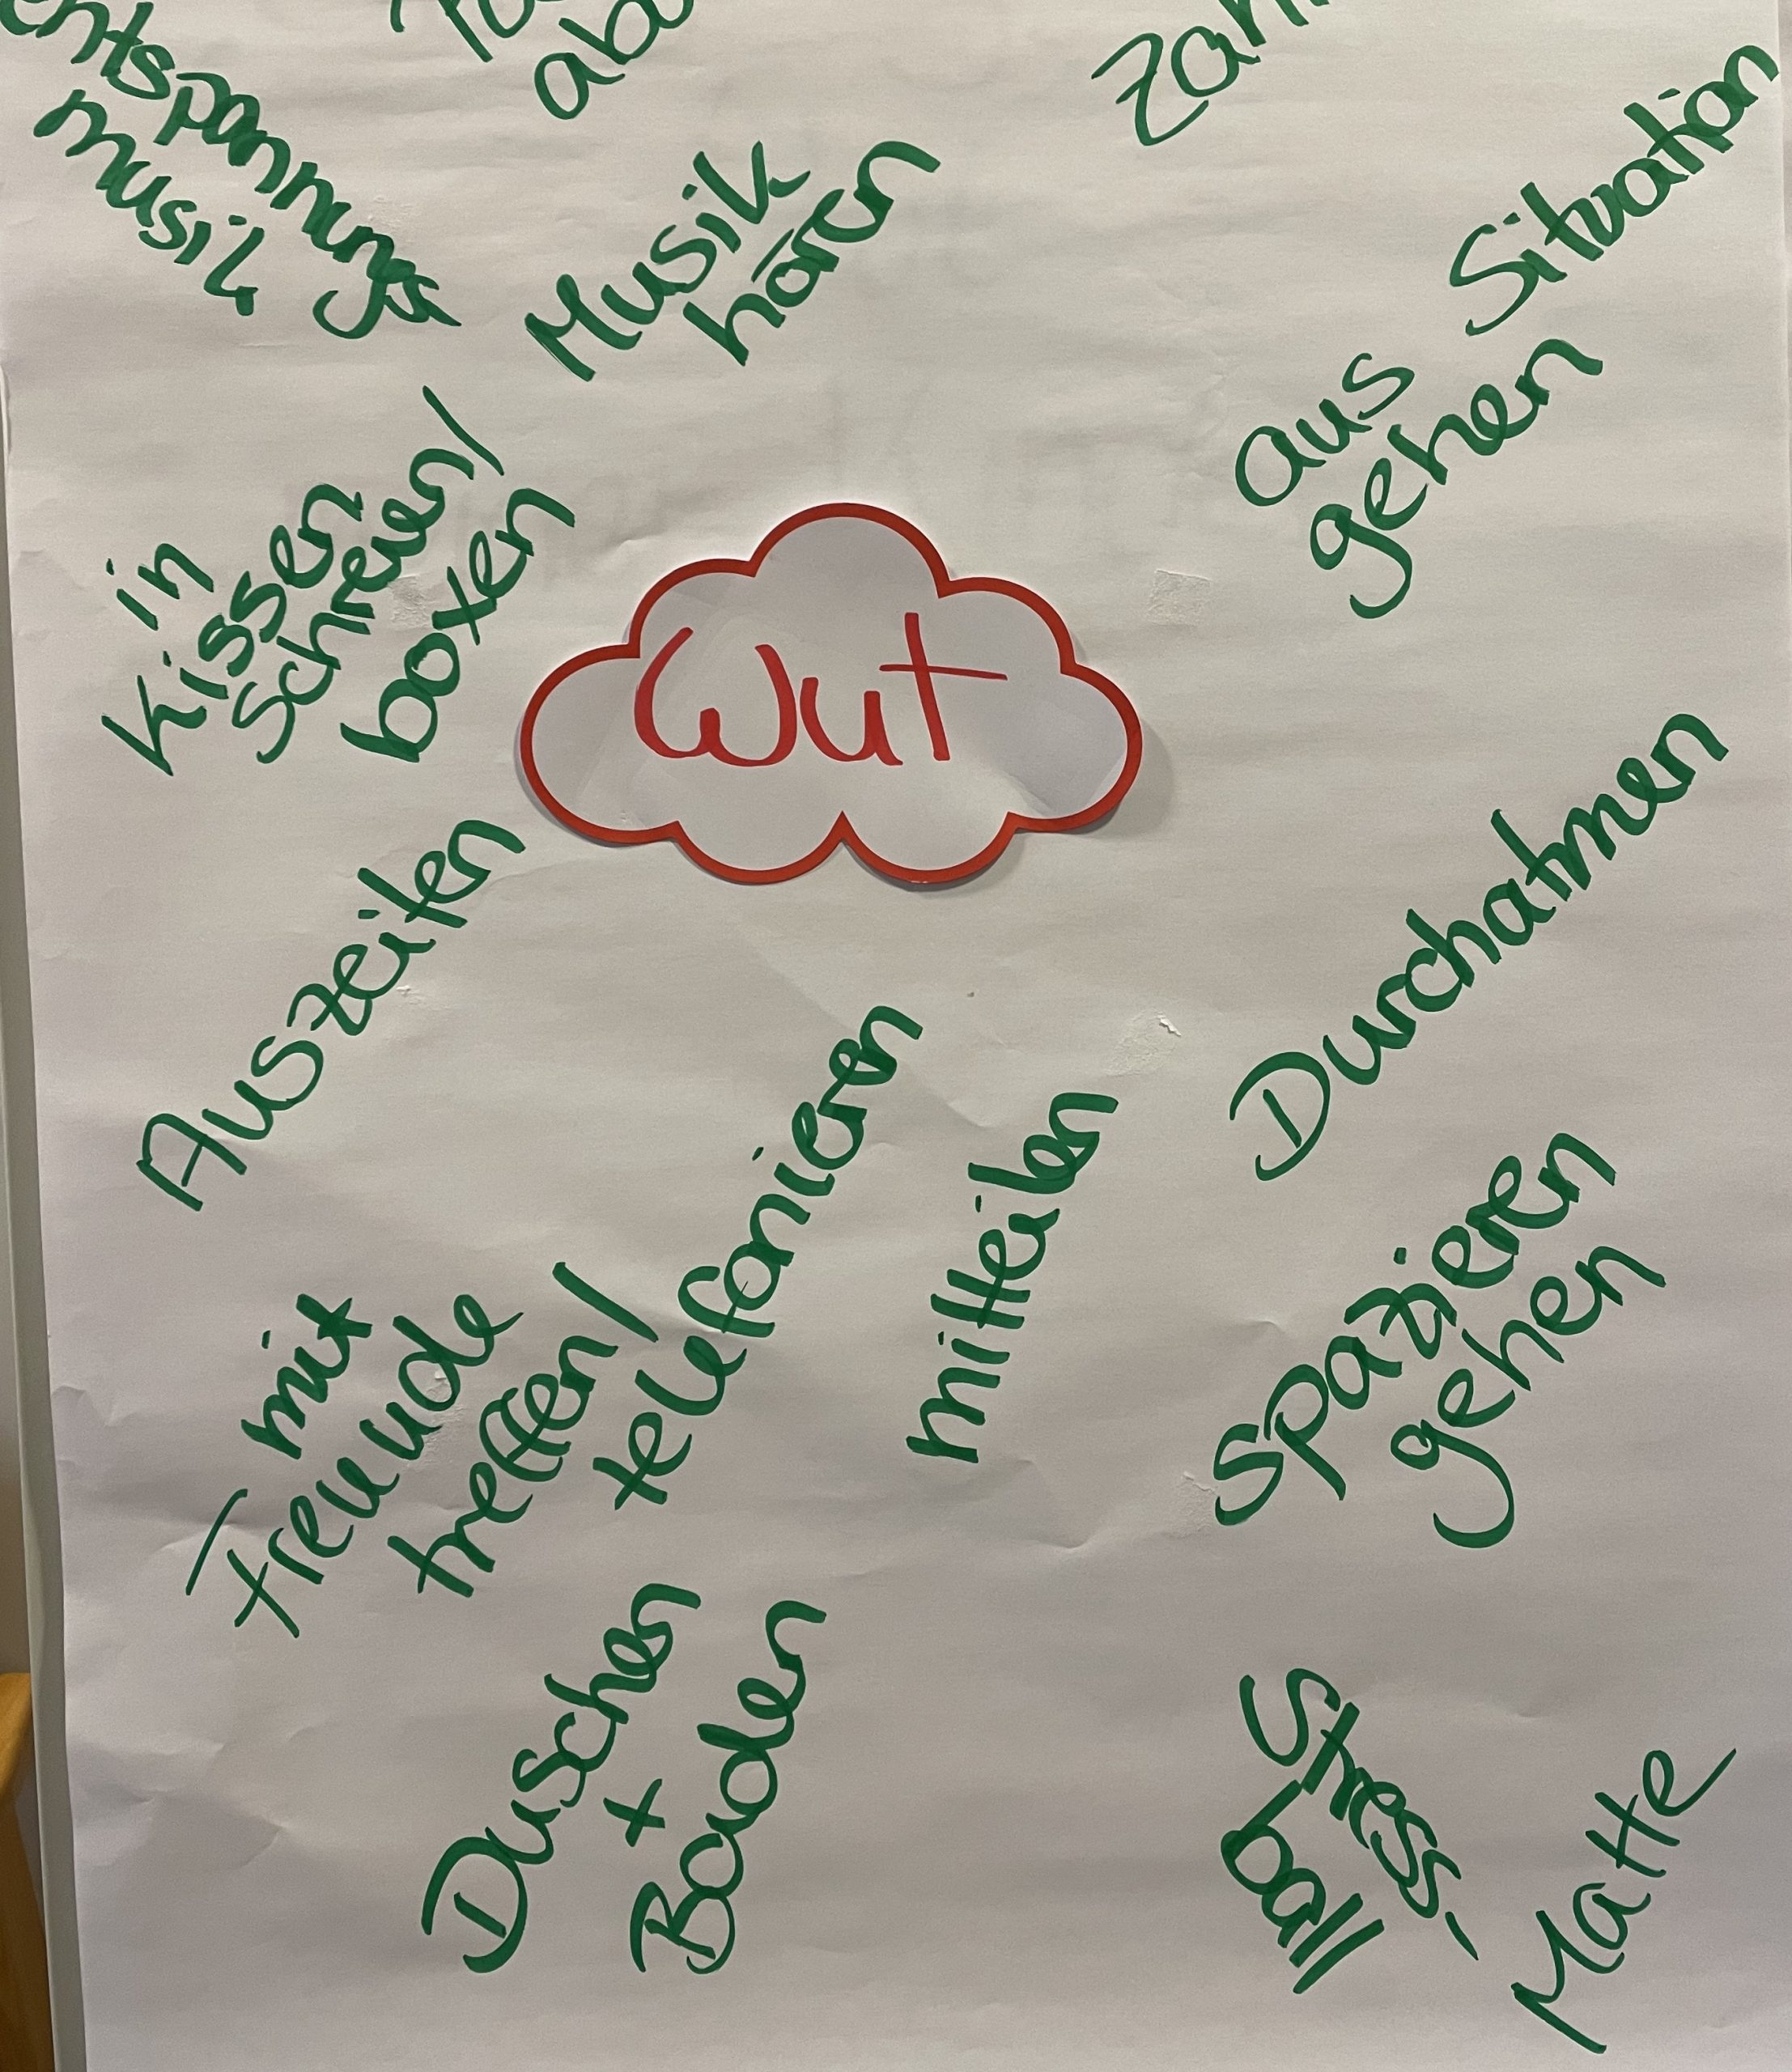 entspannungs
musik
Musik
hören
aus Situation
gehen
in
Kissen
schreien/
boxen
Wut
Auszeiten
Durchatmen
mit
Freunde
treffen/
telefonieren
mitteilen
Spazieren
gehen
Duschen
+
Baden
Stress-
ball
Matte